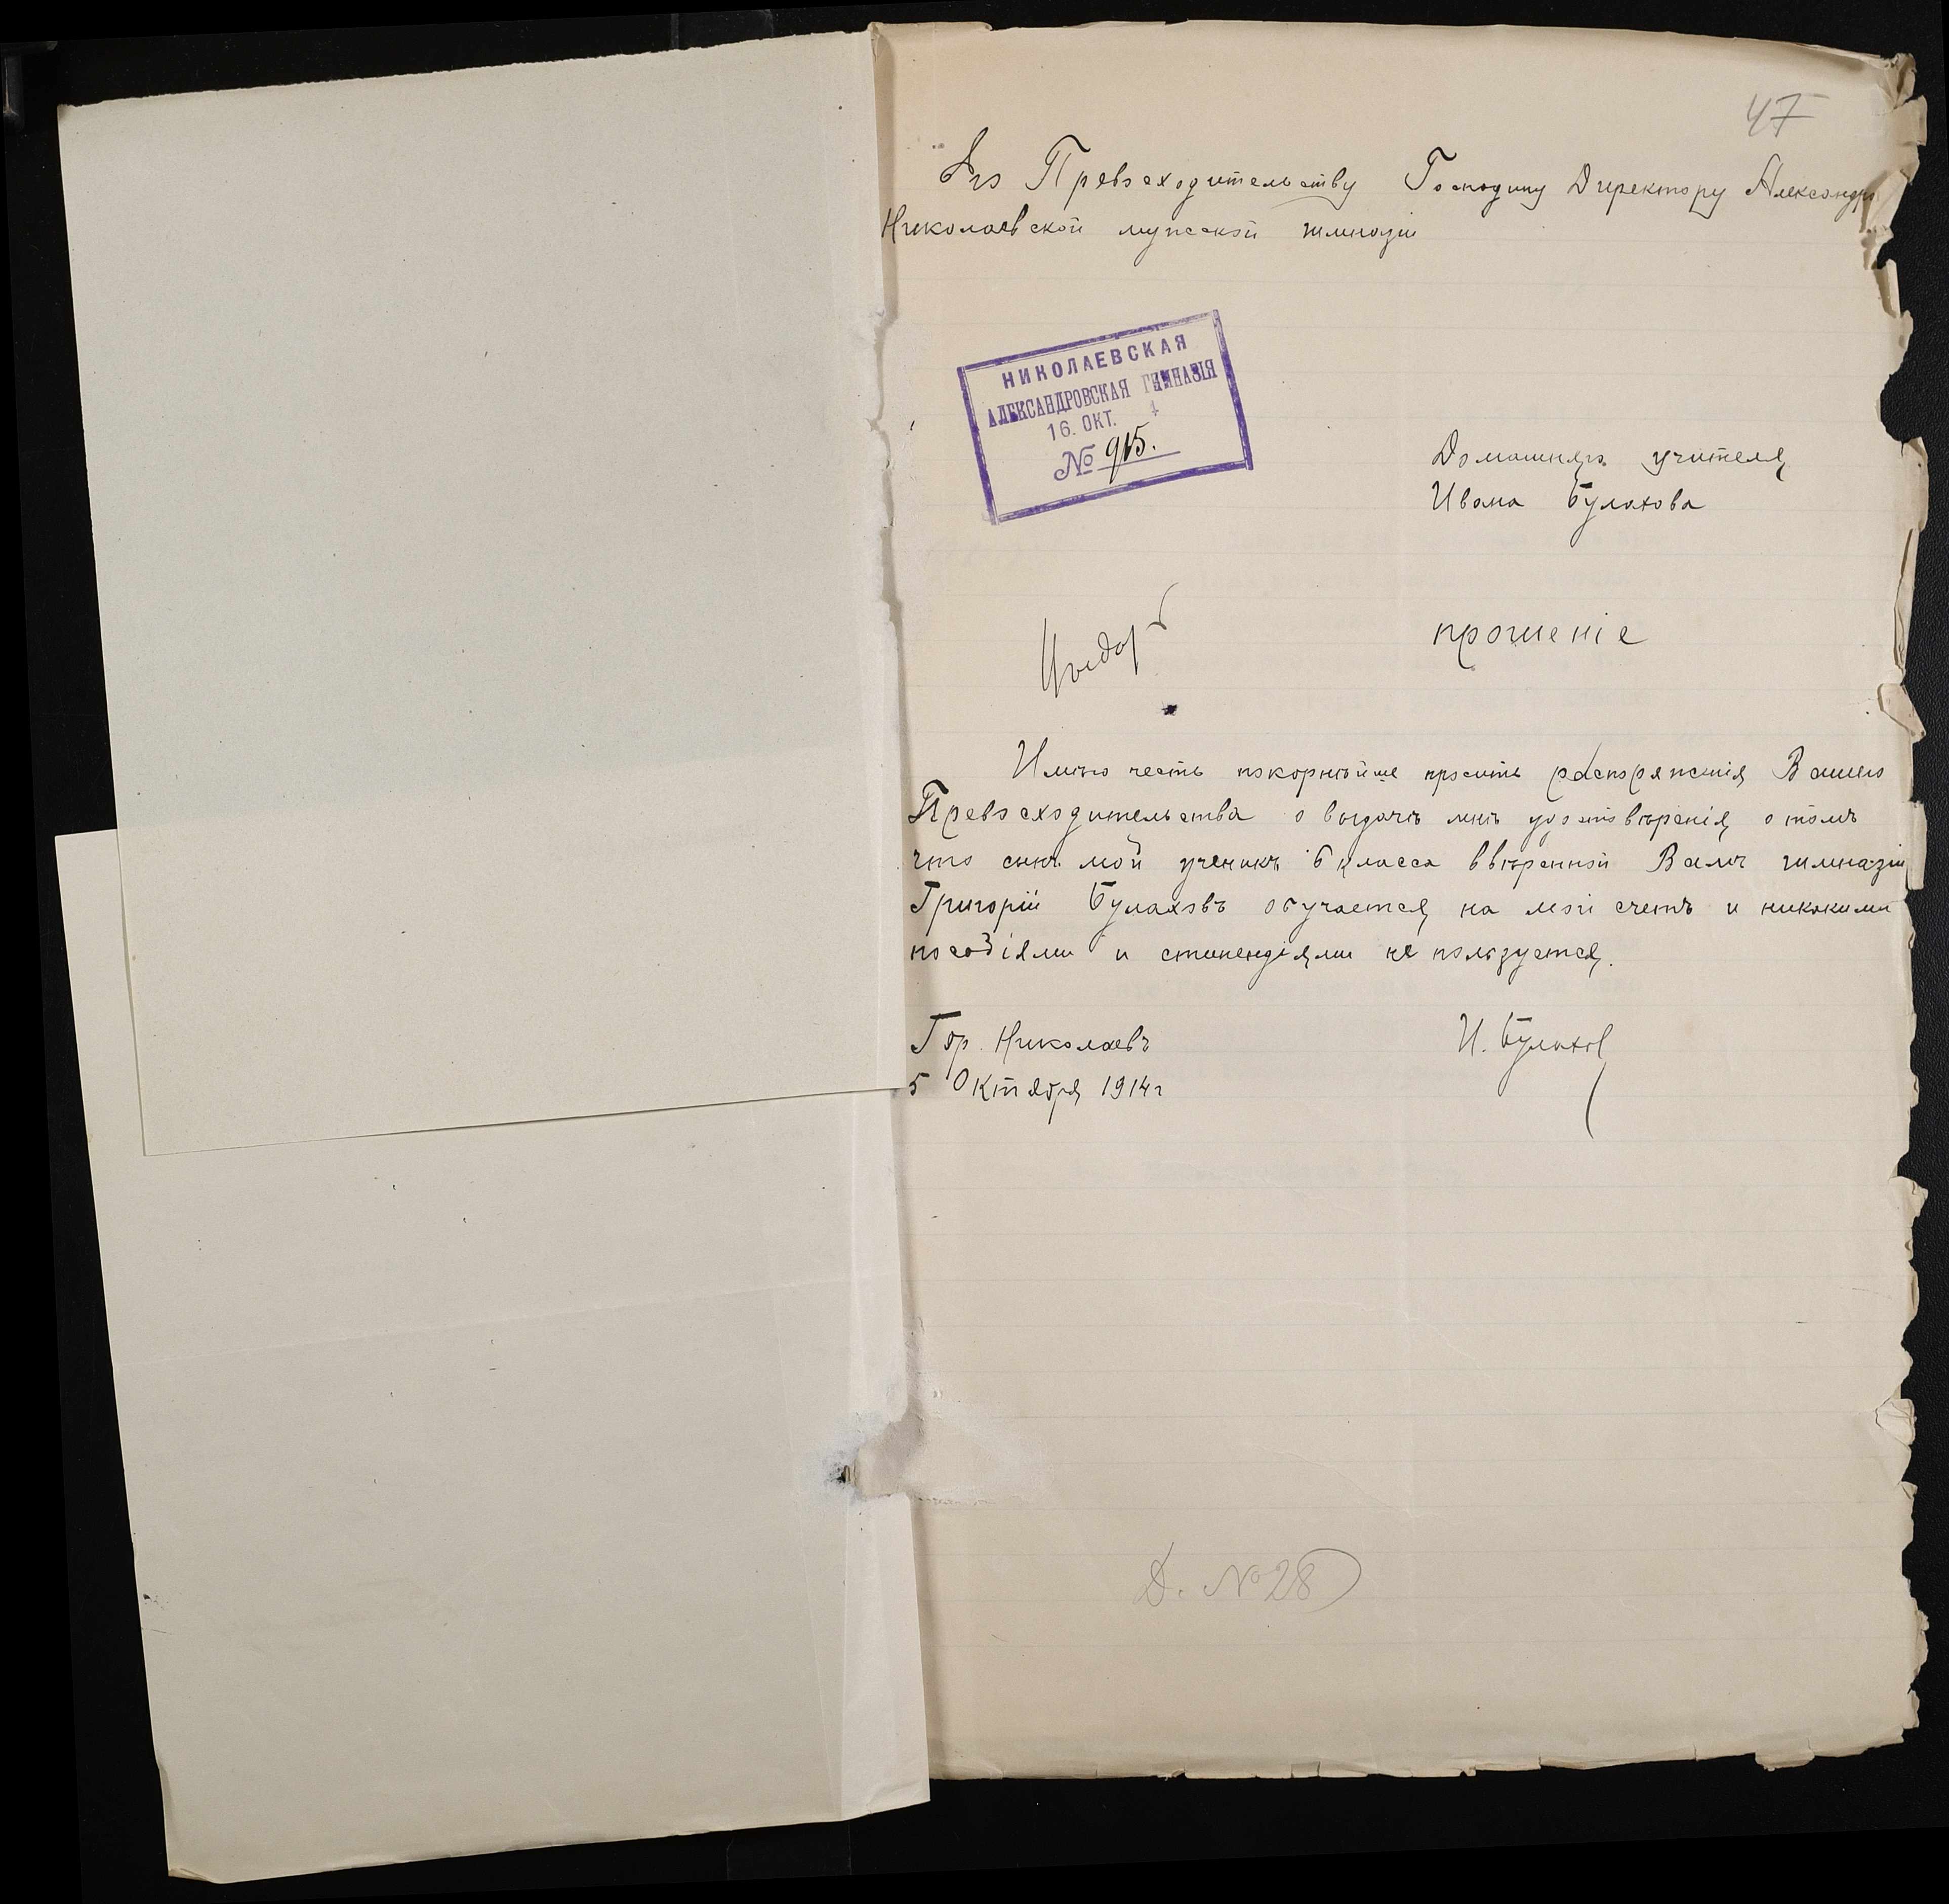 47
Его Превосходительству Господину Директору Александро
Николаевской мужской гимназіи
НИКОЛАЕВСКАЯ
АЛЕКСАНДРОВСКАЯ ГИМНАЗІЯ
16. ОКТ. 4
№ 915.
Домашняго учителя
Ивана Булахова
прошеніе
Имѣю честь покорнѣйше просить распоряженія Вашего
Превосходительства о выдачѣ мнѣ удостовѣренія о томъ
что сынъ мой ученикъ 6 класса ввѣренной Вамъ гимназіи
Григорій Булаховъ обучается на мой счетъ и никакими
пособіями и стипендіями не пользуется.
Гор. Николаевъ
И. Булахов
5 Октября 1914 г
Д. № 28